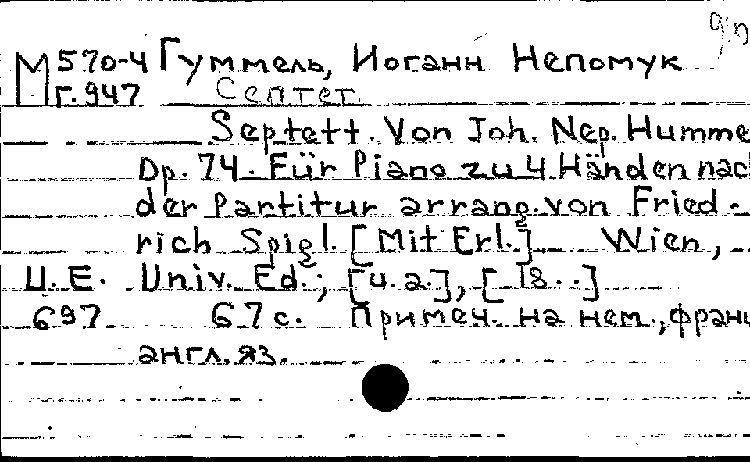 М 570-4 Гуммель, Иоганн Непомук
Г.947 Септет.
Septett. Von Joh. Nep. Humme
Op. 74. Für Piano zu 4 Händen nac
der Partitur arrang. von Fried-
rich Spigl. [Mit Erl.] Wien,
U.E. Univ. Ed.; [u.a.], [18..]
697 67 с. Примеч. на нем., франц
англ. яз.